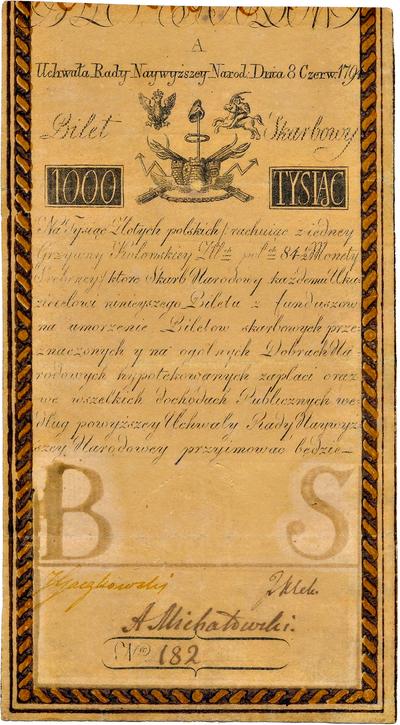 A
Uchwała Rady Naywyższey Narod: Dnia 8 Czerw: 179
Bilet Skarbowy
1000 TYSIĄC
Na Tysiąc Złotych polskich / rachuiąc z iedney
Grzywny Kolonskiey Złt pol: 84½ Monety
Srebrney / ktore Skarb Narodowy każdemu Oka
zicielowi ninieyszego Biletu z funduszow
na umorzenie Biletow skarbowych prze
znaczonych y na ogolnych Dobrach Na
rodowych hypotekowanych zapłaci oraz
we wszelkich dochodach Publicznych we
dług powyższey Uchwały Rady Naywyż
szey Narodowey przyimować będzie
B S
A Michałowski.
No 182